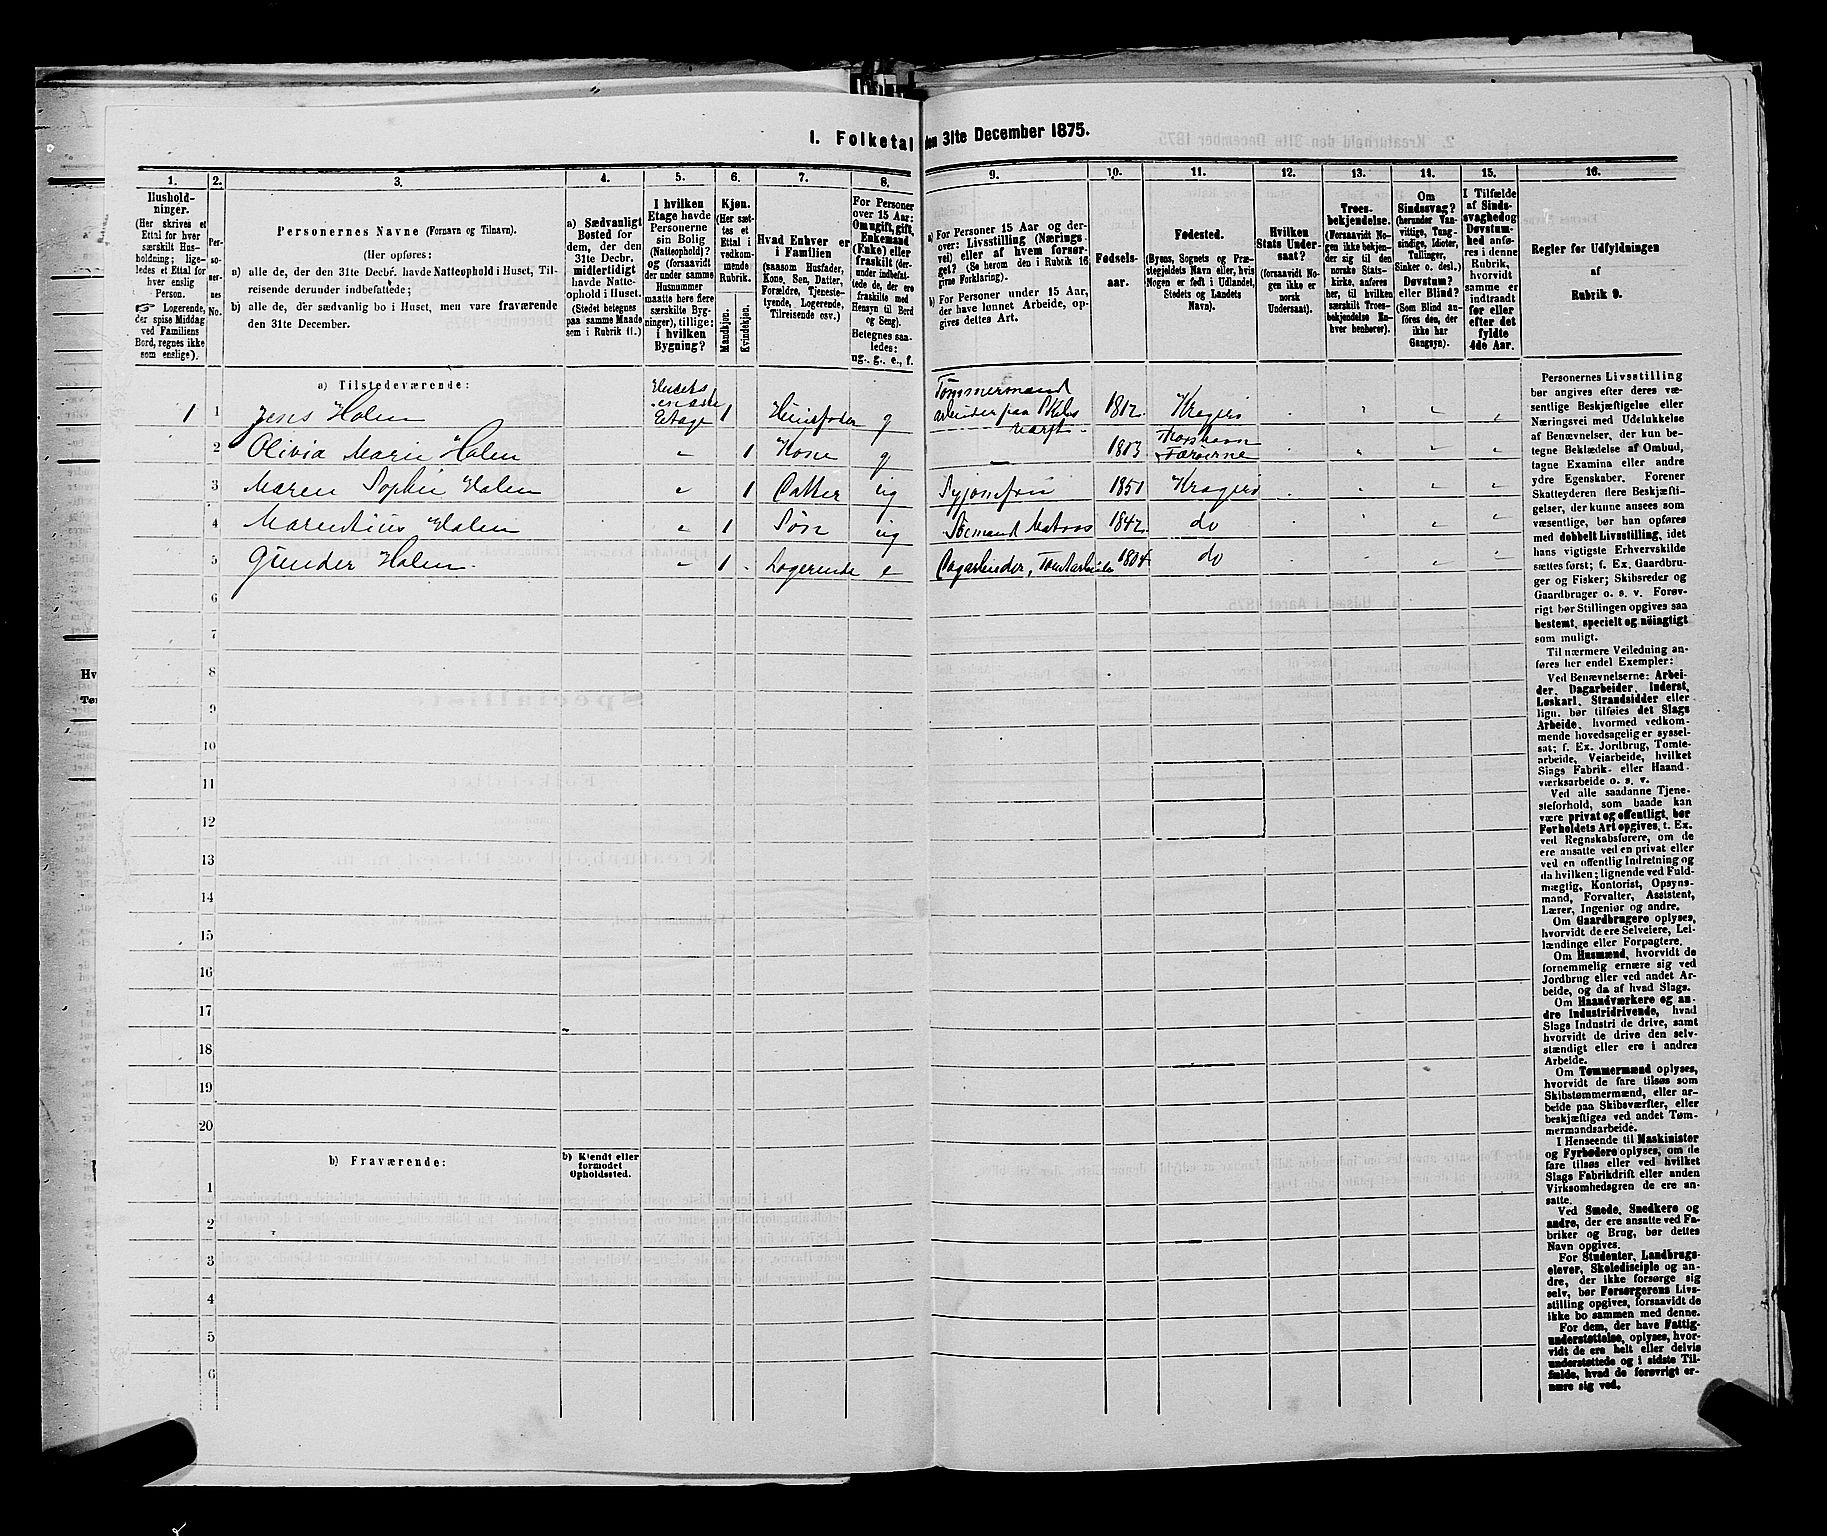 1. Folketal den 31te December 1875.
1. 2. 3. 4. 5. 6. 7. 8. 9. 10. 11. 12. 13. 14. 15. 16.
Hushold-
ninger.
(Her skrives et
Ettal for hver
særskilt Hus-
holdning; lige-
ledes et Ettal for
hver enslig
Person.
☞ Logerende,
der spise Middag
ved Familiens
Bord, regnes ikke
som enslige).
Per-
so-
ner-
nes
No.
Personernes Navne (Fornavn og Tilnavn).
(Her opføres:
a) alle de, der den 31te Decbr. havde Natteophold i Huset, Til-
reisende derunder indbefattede;
b) alle de, der sædvanlig bo i Huset, men vare fraværende
den 31te December.
a) Sædvanligt
Bosted for
dem, der den
31te Decbr.
midlertidigt
havde Natte-
ophold i Huset.
(Stedet betegnes
paa samme Maade
som i Rubrik 11.)
I hvilken
Etage havde
Personerne
sin Bolig
(Natteophold)?
og (forsaavidt
der under samme
Husnummer
maatte høre flere
særskilte Byg-
ninger), tillige:
i hvilken
Bygning?
Kjøn.
(Her sæt-
tes et
Ettal i
vedkom-
mende
Rubrik.
Mandkjøn.
Kvindekjøn.
Hvad Enhver er
i Familien
(saasom Husfader,
Kone, Søn, Datter,
Forældre, Tjeneste-
tyende, Logerende,
Tilreisende osv.)
For Personer
over 15 Aar:
Om ugift, gift,
Enkemand
(Enke) eller
fraskilt (der-
under indbefat-
tede de, der ere
fraskilte med
Hensyn til Bord
og Seng).
Betegnes saa-
ledes:
ug., g., e., f.
a) For Personer 15 Aar og der-
over: Livsstilling (Nærings-
vei) eller af hvem forsør-
get? (Se herom den i Rubrik 16
givne Forklaring).
b) For Personer under 15 Aar,
der have lønnet Arbeide, op-
gives dettes Art.
Fødsels-
aar.
Fødested.
(Byens, Sognets og Præ-
stegjeldets Navn eller, hvis
Nogen er født i Udlandet,
Stedets og Landets
Navn).
Hvilken
Stats Under-
saat?
(forsaavidt No-
gen ikke er
norsk
Undersaat).
Troes-
bekjendelse.
(Forsaavidt No-
gen ikke bekjen-
der sig til den
norske Stats-
kirke, anføres
her, til hvilken
særskilt Troes-
bekjendelse En-
hver henhører).
Om
Sindssvag?
(herunder Van-
vittige, Tung-
sindige, Idioter,
Tullinger,
Sinker o. desl.)
Døvstum?
eller Blind?
(Som Blind an-
føres den, der
ikke har
Gangsyn).
I Tilfælde
af Sinds-
svaghed og
Døvstum-
hed anfø-
res i denne
Rubrik,
hvorvidt
samme er
indtraadt
før eller
efter det
fyldte
4de Aar.
Regler for Udfyldningen
af
Rubrik 9.
a) Tilstedeværende:
1 1 Jens Holen Etage 1 Huusfader g Tømmermand arbeider paa 1812 Kragerø
2 Olivia Marie Holen " 1 Kone g 1813 Thorshavn Færøerne
3 Maren Sophie Holen " 1 Datter ug Syjomfru 1851 Kragerø
4 Marentius Holen " 1 Søn ug Sømand Matros 1842 do
5 Gunder Holen " 1 Logerende e Dagarbeider, Tomtarbeider 1804 do
6
7
8
9
10
11
12
13
14
15
16
17
18
19
20
b) Fraværende:
b) Kjendt eller
formodet
Opholdssted.
1
2
3
4
5
6
Personernes Livsstilling
bør angives efter deres væ-
sentlige Beskjæftigelse eller
Næringsvei med Udelukkelse
af Benævnelser, der kun be-
tegne Beklædelse af Ombud,
tagne Examina eller andre
ydre Egenskaber. Forener
Skatteyderen flere Beskjæfti-
gelser, der kunne ansees som
væsentlige, bør han opføres
med dobbelt Livsstilling, idet
hans vigtigste Erhvervskilde
sættes først; f. Ex. Gaardbru-
ger og Fisker; Skibsreder og
Gaardbruger o. s. v. Forøv-
rigt bør Stillingen opgives saa
bestemt, specielt og nöiagtigt
som muligt.
Til nærmere Veiledning an-
føres her endel Exempler:
Ved Benævnelserne: Arbei-
der, Dagarbeider, Inderst,
Løskarl, Strandsidder eller
lign. bør tilføies det Slags
Arbeide, hvormed vedkom-
mende hovedsagelig er syssel-
sat; f. Ex. Jordbrug, Tomte-
arbeide, Veiarbeide, hvilket
Slags Fabrik- eller Haand-
værksarbeide o. s. v.
Ved alle saadanne Tjene-
steforhold, som baade kan
være privat og offentligt, bør
Forholdets Art opgives, t. Ex.
ved Regnskabsførere, om de
ere ansatte ved en privat eller
ved en offentlig Indretning og
da hvilken; lignende ved Fuld-
mægtig, Kontorist, Opsyns-
mand, Forvalter, Assistent,
Lærer, Ingeniør og andre.
Om Gaardbrugere oplyses,
hvorvidt de ere Selveiere, Lei-
lændinge eller Forpagtere.
Om Husmænd, hvorvidt de
fornemmelig ernære sig ved
Jordbrug eller ved andet Ar-
beide, og da af hvad Slags.
Om Haandværkere og an-
dre Industridrivende, hvad
Slags Industri de drive, samt
hvorvidt de drive den selv-
stændigt eller ere i andres
Arbeide.
Om Tømmermænd oplyses,
hvorvidt de fare tilsøs som
Skibstømmermænd, eller ar-
beide paa Skibsværfter, eller
beskjæftiges ved andet Tøm-
mermandsarbeide.
I Henseende til Maskinister
og Fyrbødere oplyses, om de
fare tilsøs eller ved hvilket
Slags Fabrikdrift eller anden
Virksomhedsgren de ere an-
satte.
Ved Smede, Snedkere og
andre, der ere ansatte ved Fa-
briker og Brug, bør dettes
Navn opgives.
For Studenter, Landbrugs-
elever, Skoledisciple og an-
dre, der ikke forsørge sig
selv, bør Forsørgerens Livs-
stilling opgives, forsaavidt de
ikke bo sammen med denne.
For dem, der have Fattig-
understøttelse, oplyses, hvor-
vidt de ere helt eller delvis
understøttede og i sidste Til-
fælde, hvad de forøvrigt er-
nære sig ved.